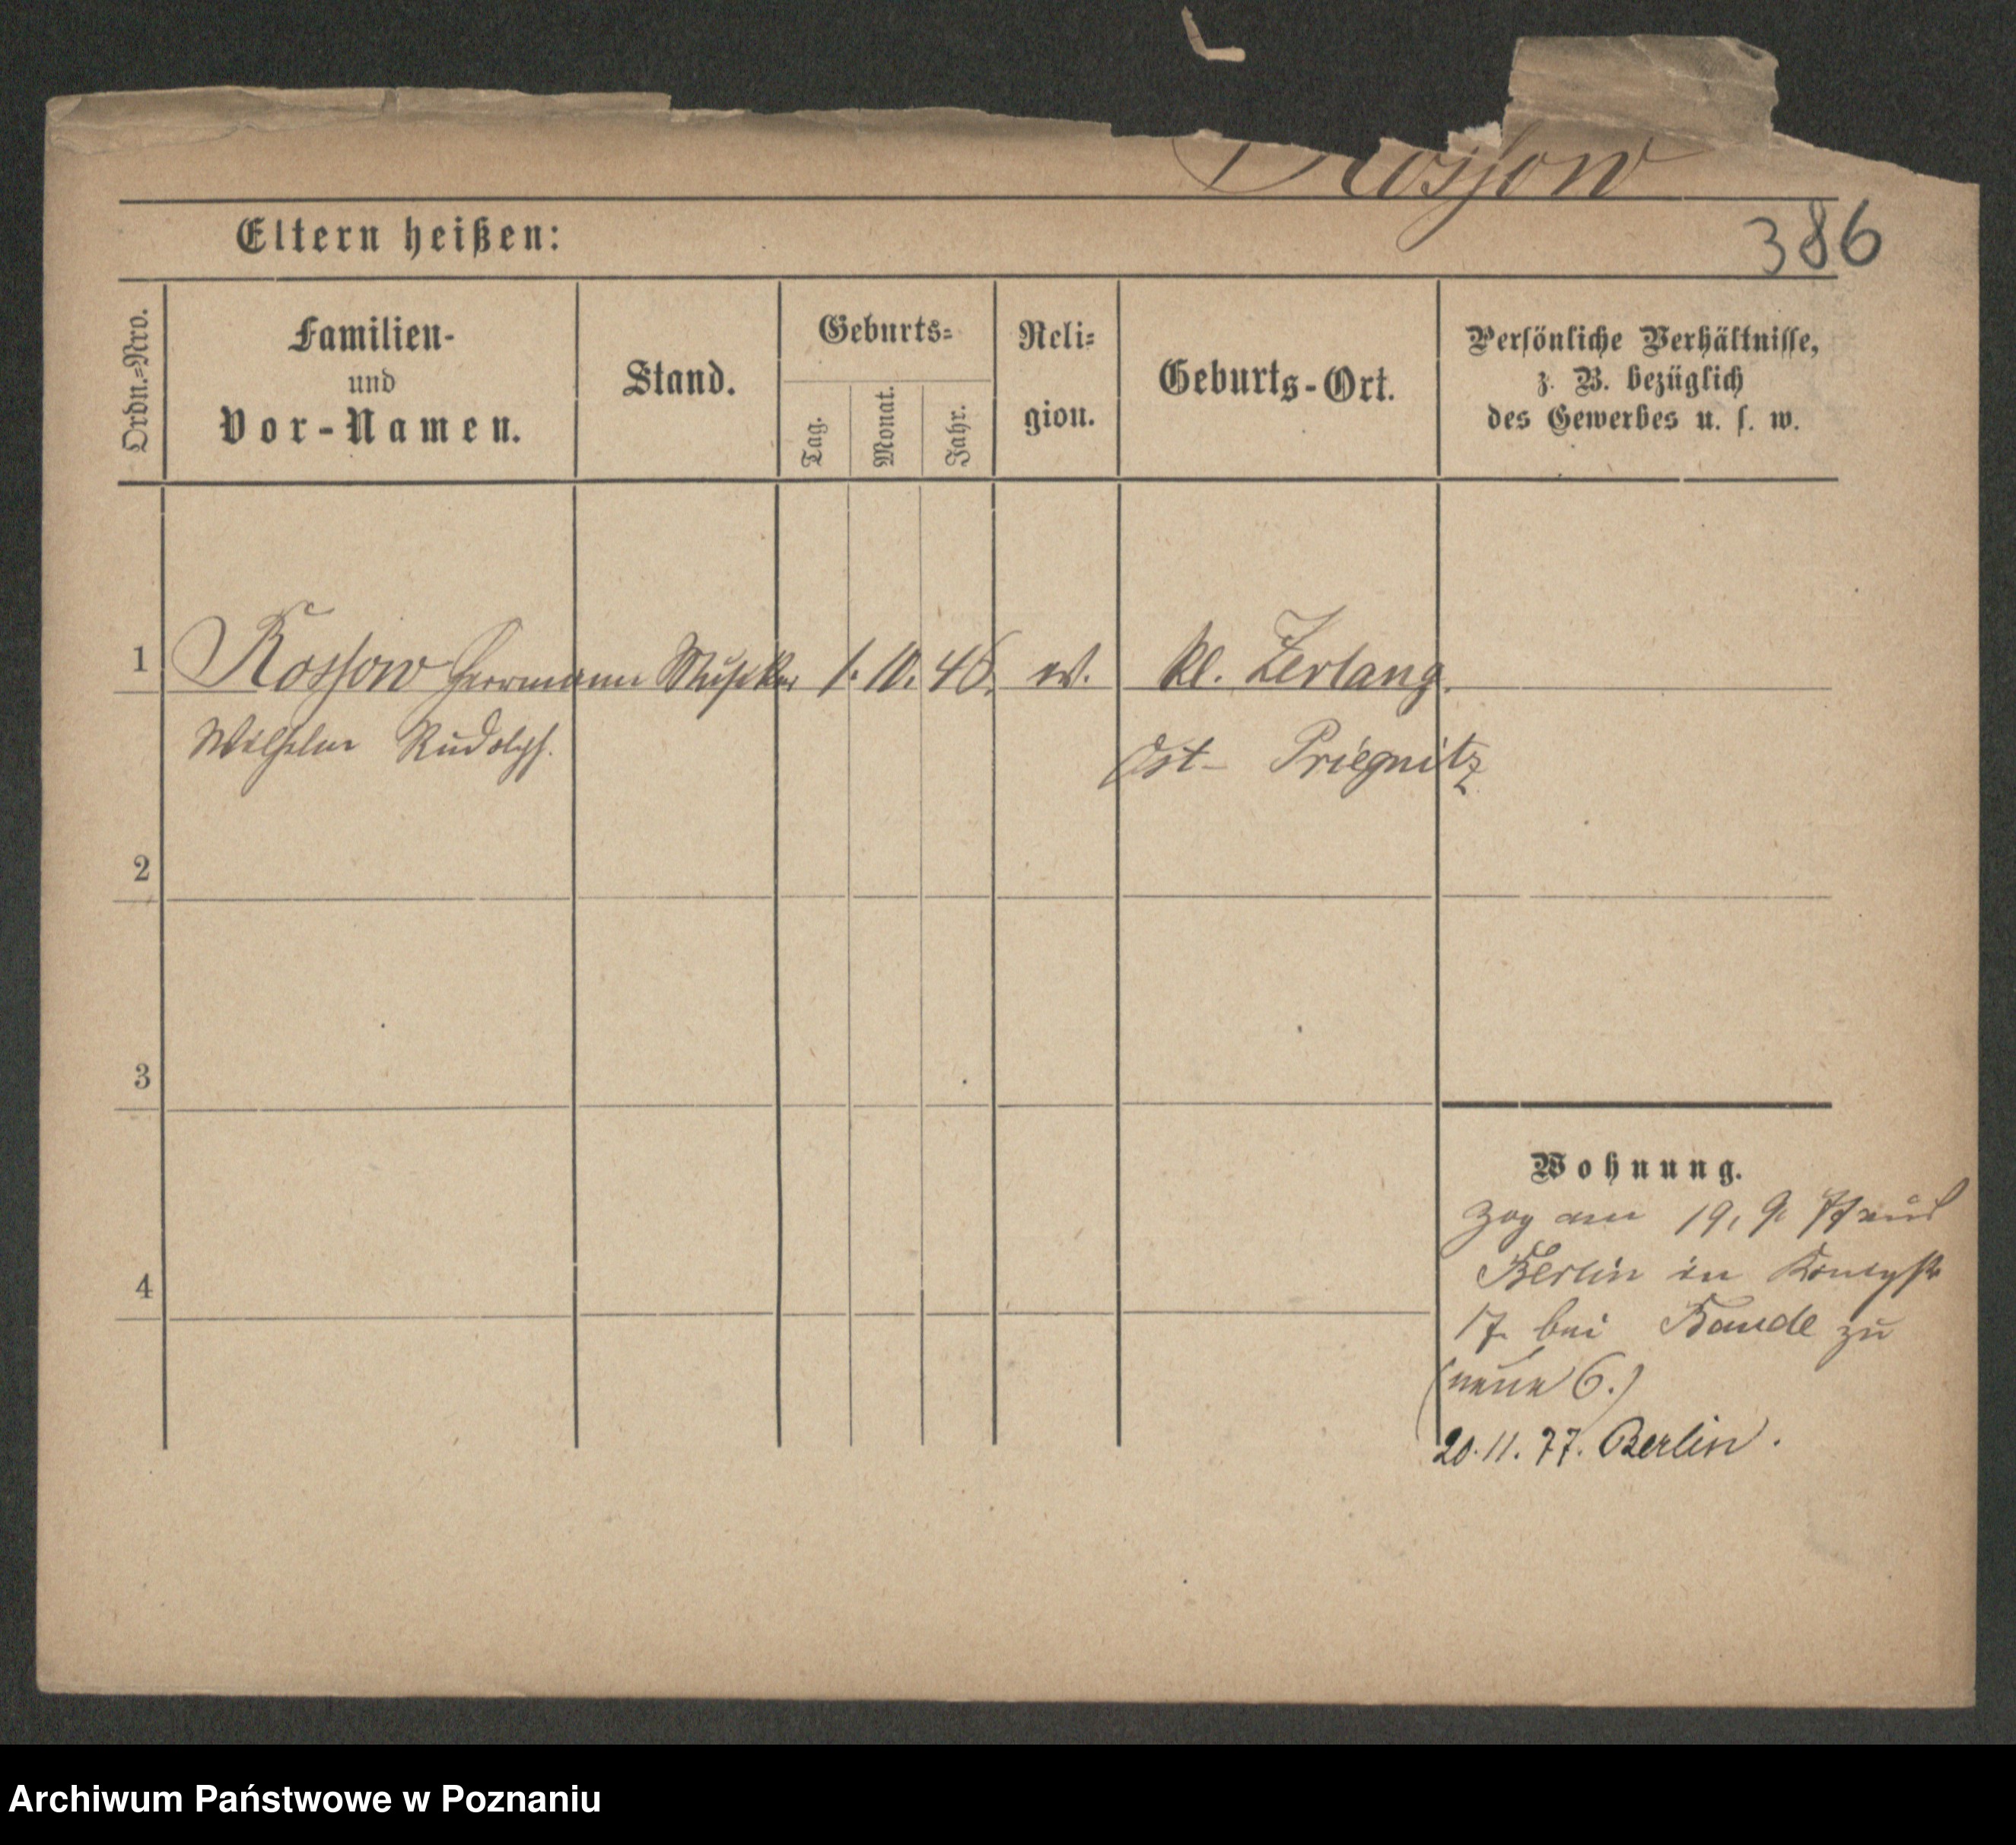 Rossow
386
Eltern heißen:
Ordn.=Nro.
Familien-
und
Vor-Namen.
Stand.
Geburts=
Tag.
Monat.
Jahr.
Reli=
gion.
Geburts-Ort.
Persönliche Verhältnisse,
z. B. bezüglich
des Gewerbes u. s. w.
1 Rossow Herrmann Musiker 1. 10. ev. Kl. Zerlang.
Wilhelm Rudolph. Ost- Priegnitz
2
3
4
Wohnung.
zog am 19. 9. 77 aus
Berlin in Königstr
17 bei Baude zu
(neue 6.)
20. 11. 77. Berlin.
Archiwum Państwowe w Poznaniu